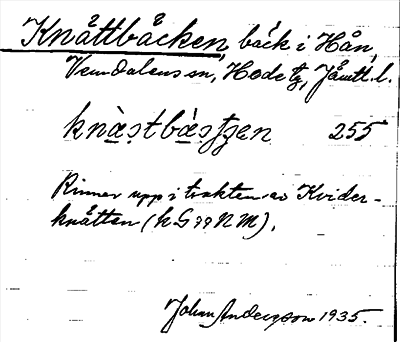 Knåttbäcken, bäck i Hån,
Vemdalens sn, Hede tg, Jämtl. l.
knàstbäsʃʒen 255
Rinner upp i trakten av Kvider-
knätten (h G 99 N M).
Johan Anderson 1935.